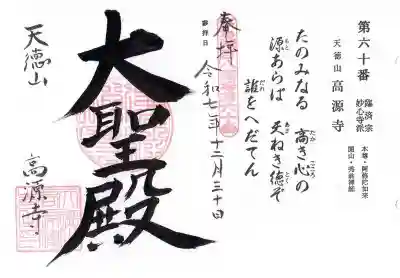 第六十番
臨済宗
妙心寺派
天徳山
高源寺
本尊・阿弥陀如来
開山・秀翁禅師
たのみなる 高き心の
たか
こころ
源あらば 天ねき徳ぞ
もと
あま
とく
誰をへだてん
だれ
参拝日
奉拝
令和七年十二月三十日
大聖殿
天徳山
高源寺